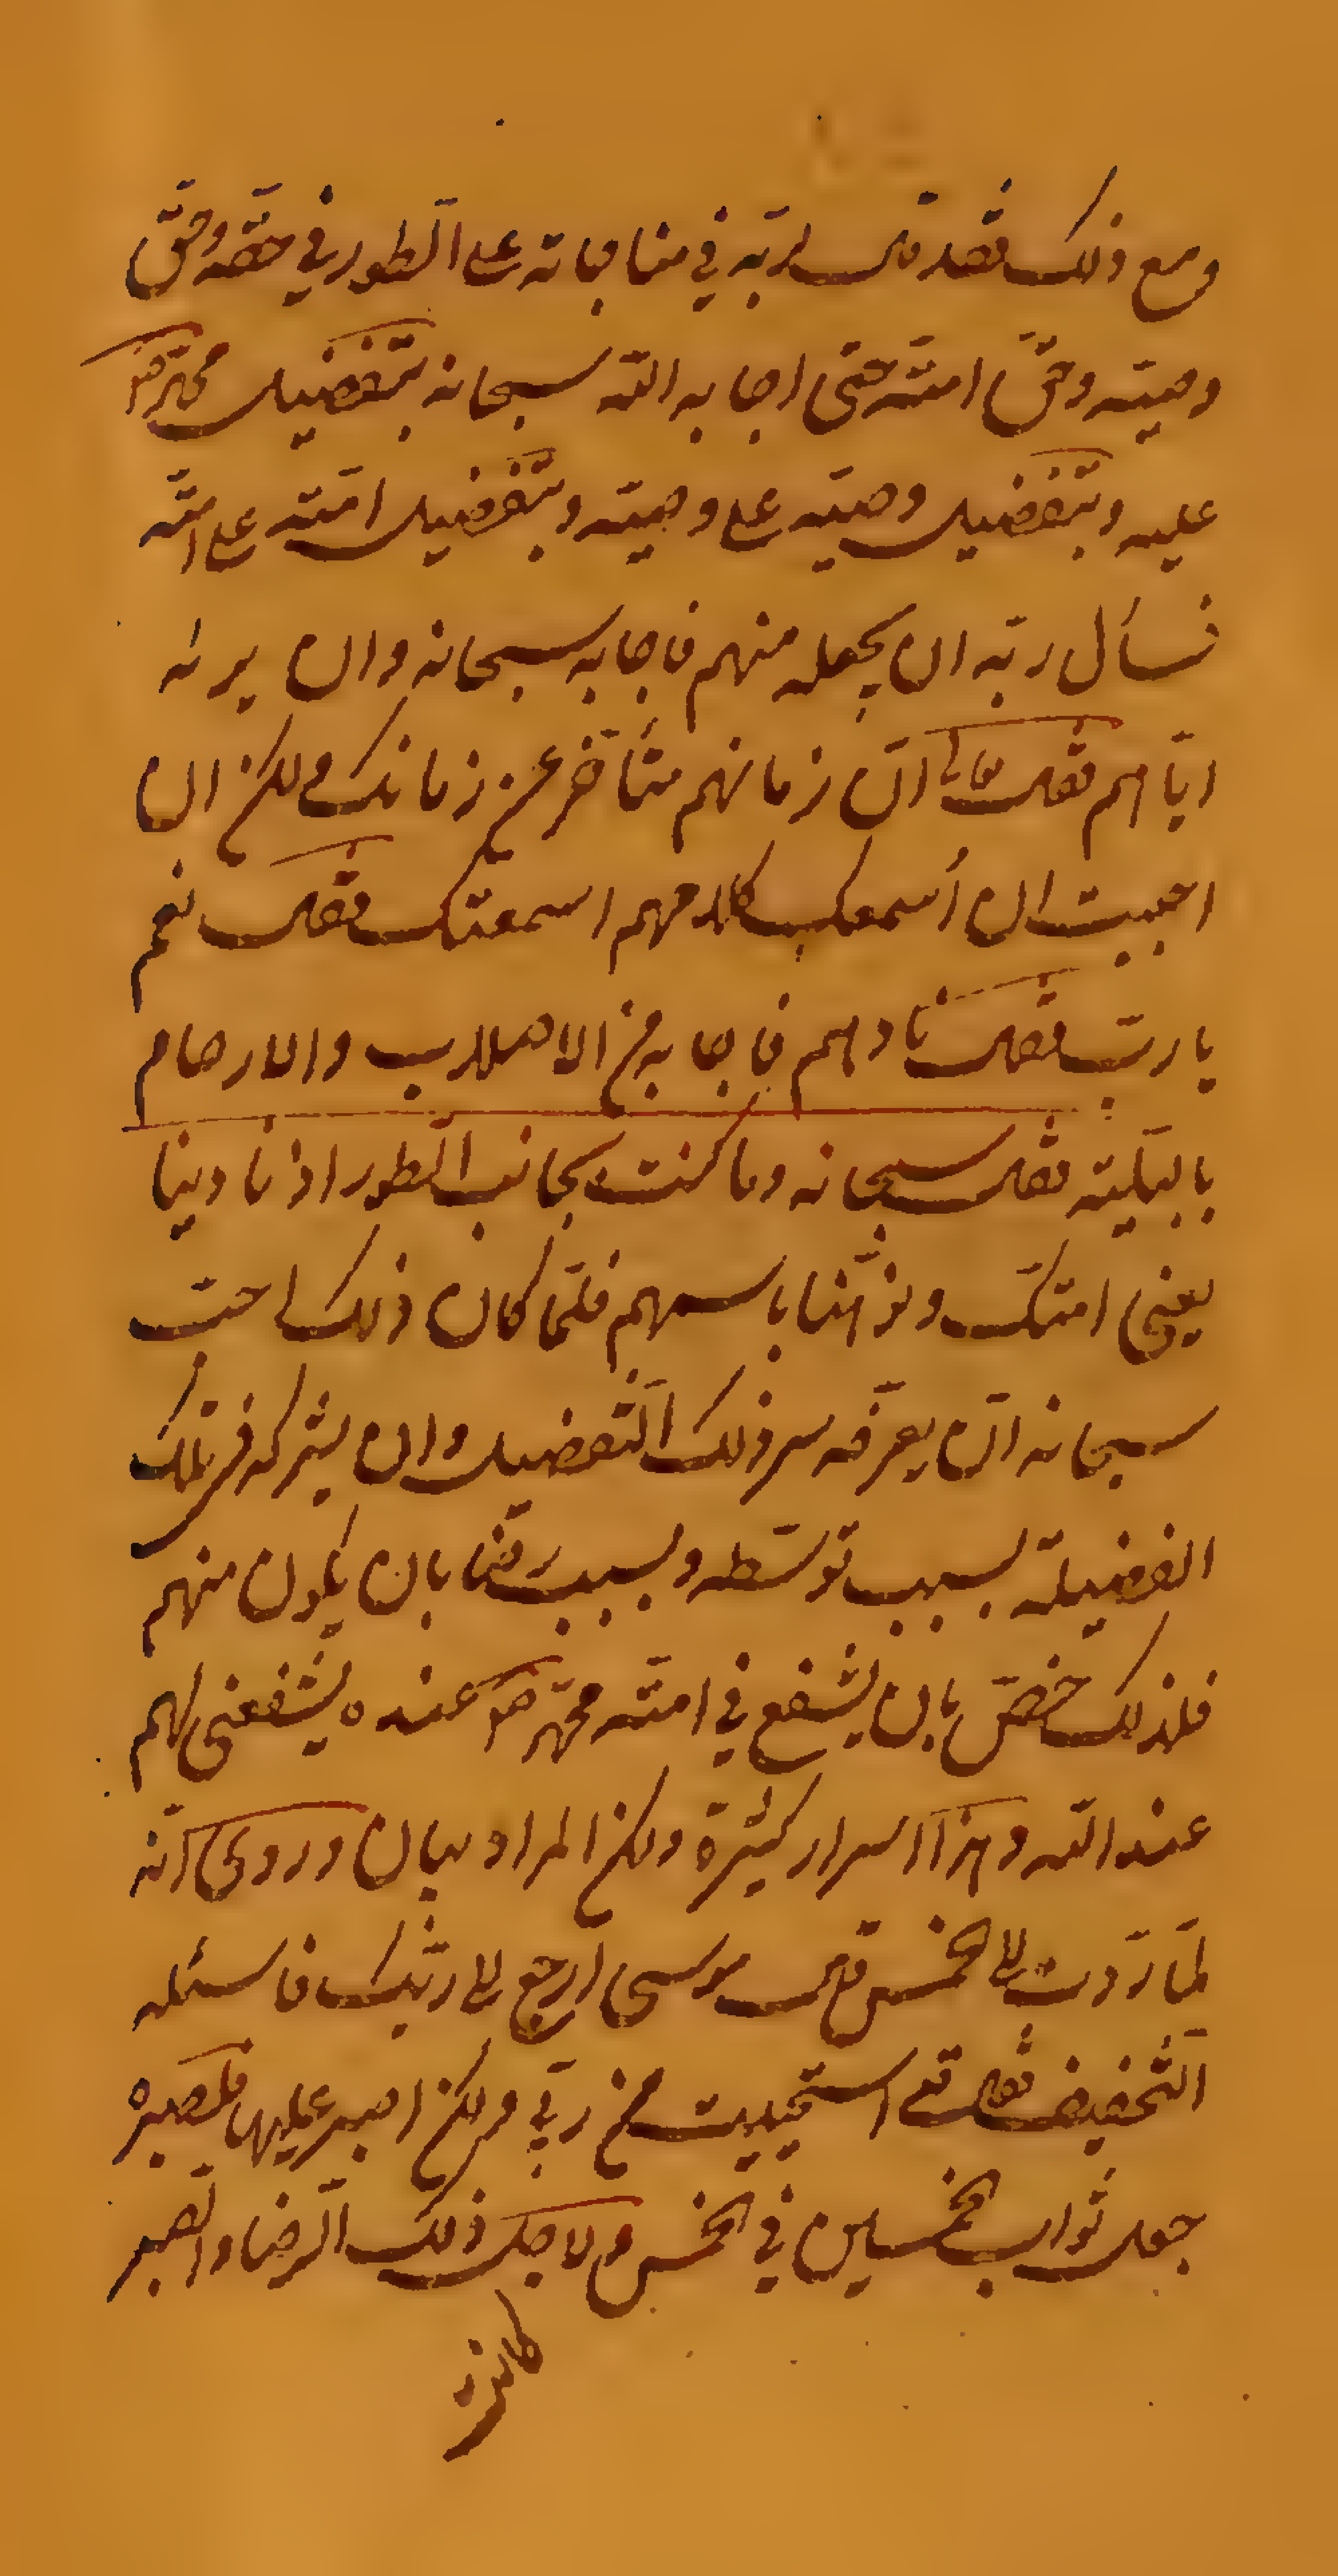 ومع ذلك فقد قال لربّه في مناجاته على الطور في حقّه وحقّ
وصيّه وحقّ امّته حتّى اجابه اللّه سبحانه بتفضيل محمّد ص
عليه وبتفضيل وصيّه على وصيّه وبتفضيل امّته على امّته
فسأل ربّه ان يجعله منهم فاجابه سبحانه وان يريه
ايّاهم فقال تعالى انّ زمانهم متأخّر عن زمانك ولكن ان
احببت ان اُسمعك كلامهم اسمعتك فقال نعم
يا ربّ فقال نادهم فاجابه من الاصلاب والارحام
بالتلبية فقال سبحانه وما كنت بجانب الطّور اذ نادينا
يعني امّتك ونوّهنا باسمهم فلمّا كان ذلك احبّ
سبحانه ان يعرّفه سر ذلك التّفضيل وان يشركه في تلك
الفضيلة بسبب توسّطه وبسبب رقّنا بان يكون منهم
فلذلك خصّ بان يشفع في امّته محمّد ص عنده يشفعنى لهم
عند اللّه وهذا اسرار كثيرة ولكن المراد بيان وروى انّه
لمّا ردّت الى الخمس قال موسى ارجع الى ربّك فاسئله
التّخفيف فقال قد استحييت من ربّي ولكن اصبر عليها فلصبره
جعل ثواب الخمسين في الخمس ولاجل ذلك الرّضا والصّبر
كانت